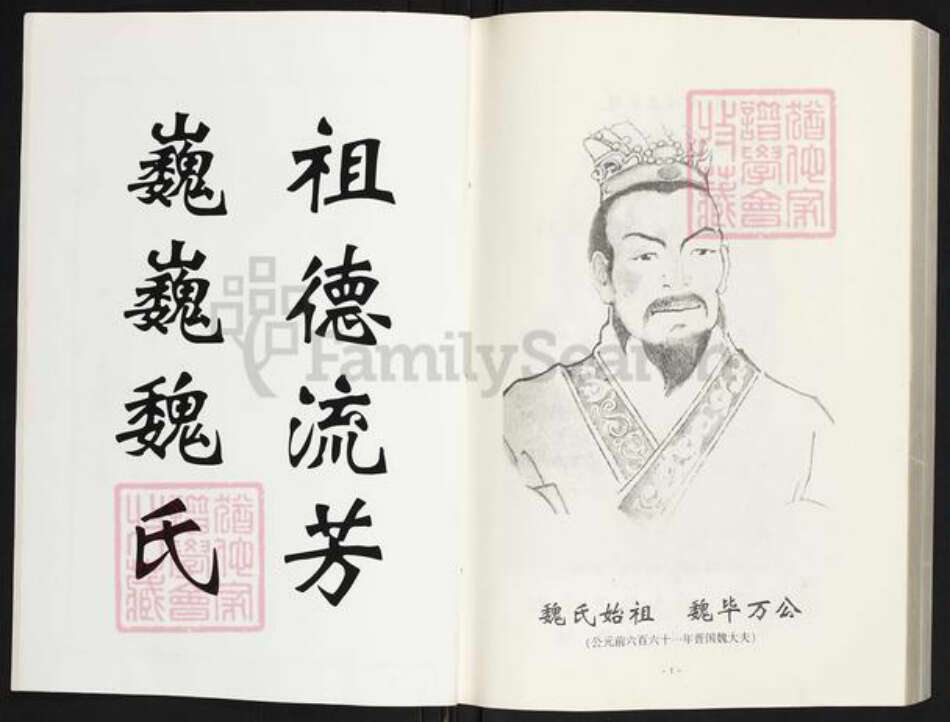 祖德流芳
巍巍魏氏
猶他家
譜學會
收藏
FamilySearch
猶他家
譜學會
收藏
魏氏始祖 魏毕万公
(公元前六百六十一年晋国魏大夫)
- 1 -